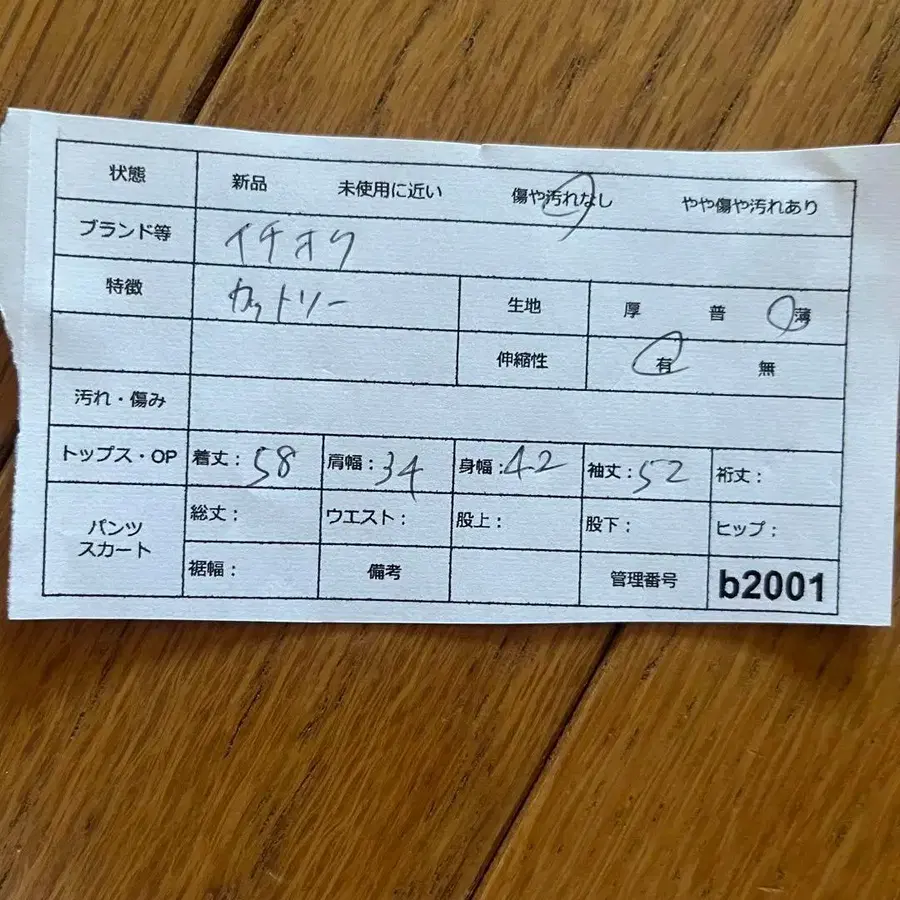 状態 新品 未使用に近い 傷や汚れなし やや傷や汚れあり
ブランド等 イチオク
特徴 カットソー 生地 厚 普 薄
伸縮性 有 無
汚れ・傷み
トップス・OP 着丈:58 肩幅:34 身幅:42 袖丈:52 裄丈:
パンツ スカート 総丈: ウエスト: 股上: 股下: ヒップ:
裾幅: 備考 管理番号 b2001